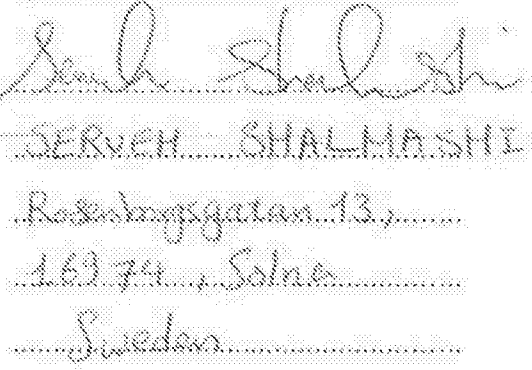 Serveh Shalmashi
SERVEH SHALMASHI
Rosenborgsgatan 13,
16974, Solna
Sweden